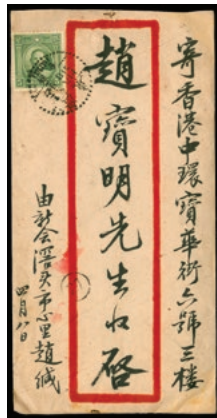 寄香港中環寶華街六號三樓
趙寶明先生收啓
由新会滘头市心里趙緘
四月八日